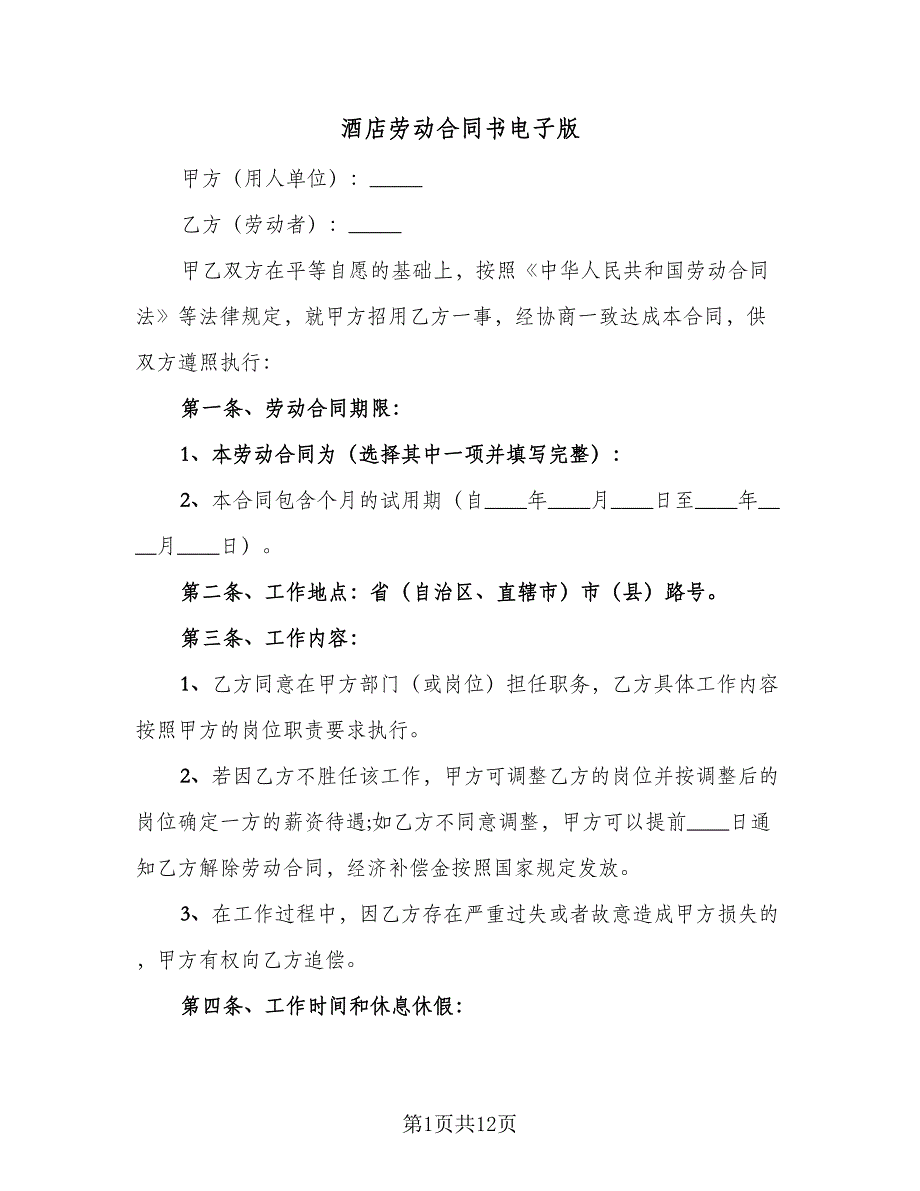 酒店劳动合同书电子版
甲方（用人单位）：_____
乙方（劳动者）：_____
甲乙双方在平等自愿的基础上，按照《中华人民共和国劳动合同
法》等法律规定，就甲方招用乙方一事，经协商一致达成本合同，供
双方遵照执行：
第一条、劳动合同期限：
1、本劳动合同为（选择其中一项并填写完整）：
2、本合同包含个月的试用期（自____年____月____日至____年__
__月____日）。
第二条、工作地点：省（自治区、直辖市）市（县）路号。
第三条、工作内容：
1、乙方同意在甲方部门（或岗位）担任职务，乙方具体工作内容
按照甲方的岗位职责要求执行。
2、若因乙方不胜任该工作，甲方可调整乙方的岗位并按调整后的
岗位确定一方的薪资待遇;如乙方不同意调整，甲方可以提前____日通
知乙方解除劳动合同，经济补偿金按照国家规定发放。
3、在工作过程中，因乙方存在严重过失或者故意造成甲方损失的
，甲方有权向乙方追偿。
第四条、工作时间和休息休假：
第1页共12页